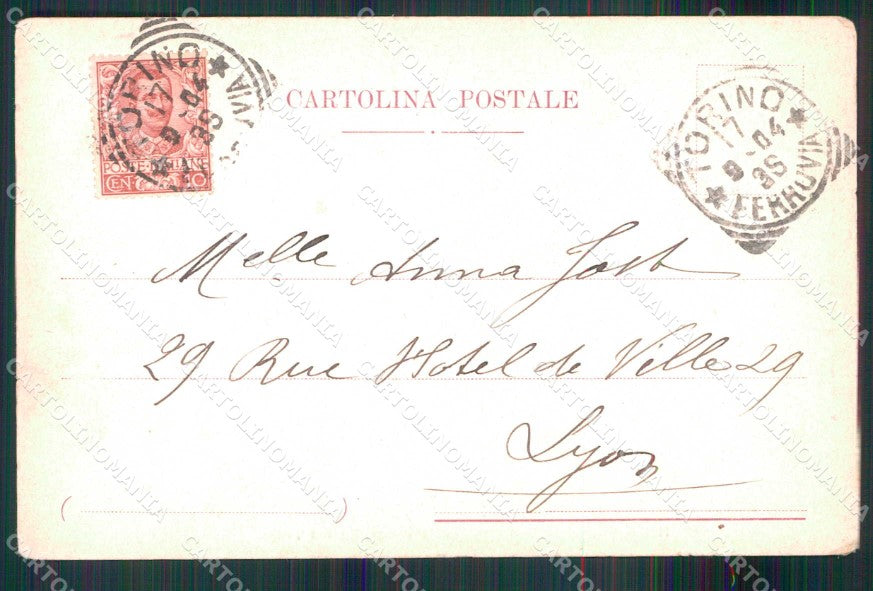 CARTOLINA POSTALE
TORINO
17
9-04
8S
FERROVIA
TORINO
17
9-04
8S
VIA
POSTE ITALIANE
CENT. 10
Melle Anna Jost
29 Rue Hotel de Ville 29
Lyon
( )
CARTOLINOMANIA